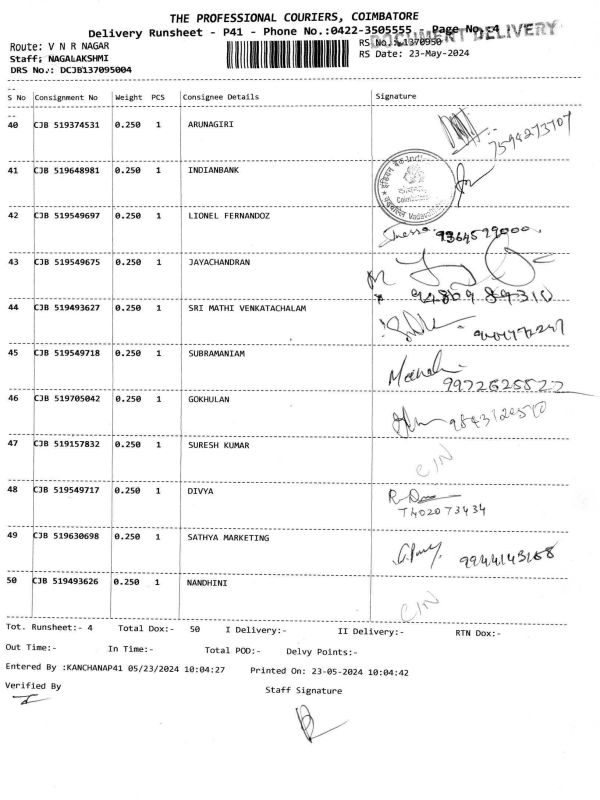 THE PROFESSIONAL COURIERS, COIMBATORE
Delivery Runsheet - P41 - Phone No.:0422-3505555 Page No.:4
DOCUMENT DELIVERY
Route: V N R NAGAR
RS No.:1370950
Staff; NAGALAKSHMI
RS Date: 23-May-2024
DRS No.: DCJB137095004
--
S No Consignment No Weight PCS Consignee Details Signature
--
40 CJB 519374531 0.250 1 ARUNAGIRI
7594273707
41 CJB 519648981 0.250 1 INDIANBANK
42 CJB 519549697 0.250 1 LIONEL FERNANDOZ
9364579000
43 CJB 519549675 0.250 1 JAYACHANDRAN
94869 89310
44 CJB 519493627 0.250 1 SRI MATHI VENKATACHALAM
45 CJB 519549718 0.250 1 SUBRAMANIAM
46 CJB 519705042 0.250 1 GOKHULAN
47 CJB 519157832 0.250 1 SURESH KUMAR
C/N
48 CJB 519549717 0.250 1 DIVYA
7402073434
49 CJB 519630698 0.250 1 SATHYA MARKETING
9944143168
50 CJB 519493626 0.250 1 NANDHINI
C/N
Tot. Runsheet:- 4 Total Dox:- 50 I Delivery:- II Delivery:- RTN Dox:-
Out Time:- In Time:- Total POD:- Delvy Points:-
Entered By :KANCHANAP41 05/23/2024 10:04:27 Printed On: 23-05-2024 10:04:42
Verified By Staff Signature